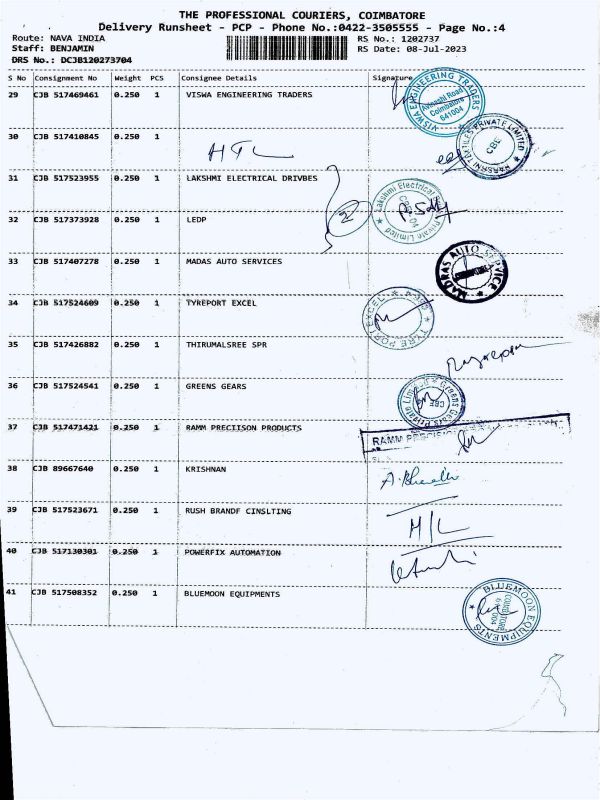 THE PROFESSIONAL COURIERS, COIMBATORE
Delivery Runsheet - PCP - Phone No.:0422-3505555 - Page No.:4
Route: NAVA INDIA RS No.: 1202737
Staff: BENJAMIN RS Date: 08-Jul-2023
DRS No.: DCJB120273704
S No Consignment No Weight PCS Consignee Details Signature
29 CJB 517469461 0.250 1 VISWA ENGINEERING TRADERS
VISWA ENGINEERING TRADERS
Avinashi Road
Coimbatore
641004
30 CJB 517410845 0.250 1
TEXTILES PRIVATE LIMITED
CBE
31 CJB 517523955 0.250 1 LAKSHMI ELECTRICAL DRIVBES
Lakshmi Electrical
Private Limited
2
32 CJB 517373928 0.250 1 LEDP
33 CJB 517407278 0.250 1 MADAS AUTO SERVICES
MADRAS AUTO SERVICE
34 CJB 517524609 0.250 1 TYREPORT EXCEL
TYRE PORT EXCEL
35 CJB 517426882 0.250 1 THIRUMALSREE SPR
36 CJB 517524541 0.250 1 GREENS GEARS
Greens Gears Private Limited
CBE
37 CJB 517471421 0.250 1 RAMM PRECIISON PRODUCTS
RAMM
38 CJB 89667640 0.250 1 KRISHNAN
39 CJB 517523671 0.250 1 RUSH BRANDF CINSLTING
40 CJB 517130301 0.250 1 POWERFIX AUTOMATION
41 CJB 517508352 0.250 1 BLUEMOON EQUIPMENTS
BLUEMOON EQUIPMENTS